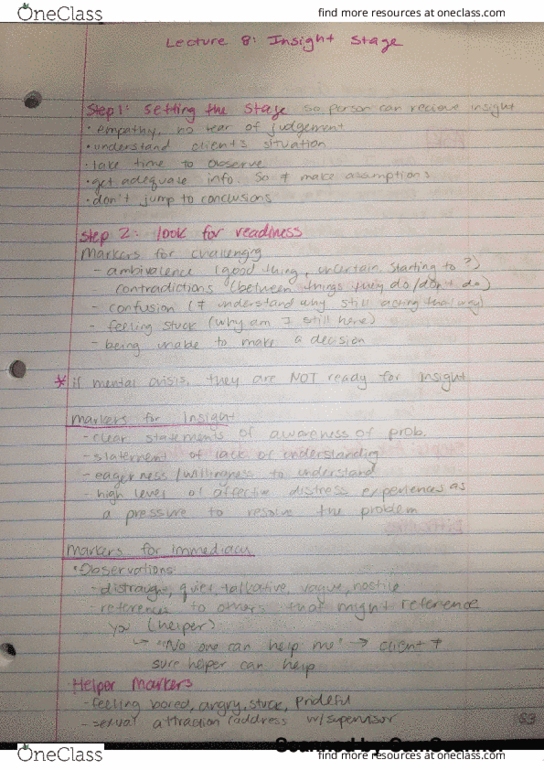 OneClass
find more resources at oneclass.com
Lecture 8: Insight Stage
Step 1: Setting the Stage so person can recieve insight
• empathy, no fear of judgement
• understand client's situation
• take time to observe
• get adequate info. so ≠ make assumptions
• don't jump to conclusions
Step 2: look for readiness
Markers for challenging
- ambivalence (good thing, uncertain, starting to ?)
contradictions (between things they do/don't do)
- confusion (≠ understand why still acting that way)
- feeling stuck (why am I still here)
- being unable to make a decision
* if mental crisis, they are NOT ready for insight
Markers for Insight
- clear statements of awareness of prob.
- statement of lack of understanding
- eagerness/willingness to understand
- high level of affective distress experiences as
a pressure to resolve the problem
Markers for Immediacy
• Observations:
- distraught, quiet, talkative, vague, hostile
- references to others that might reference
you (helper)
↳ "No one can help me" → client ≠
sure helper can help
Helper Markers
- feeling bored, angry, stuck, prideful
- sexual attraction (address w/supervisor
53
find more resources at oneclass.com
OneClass